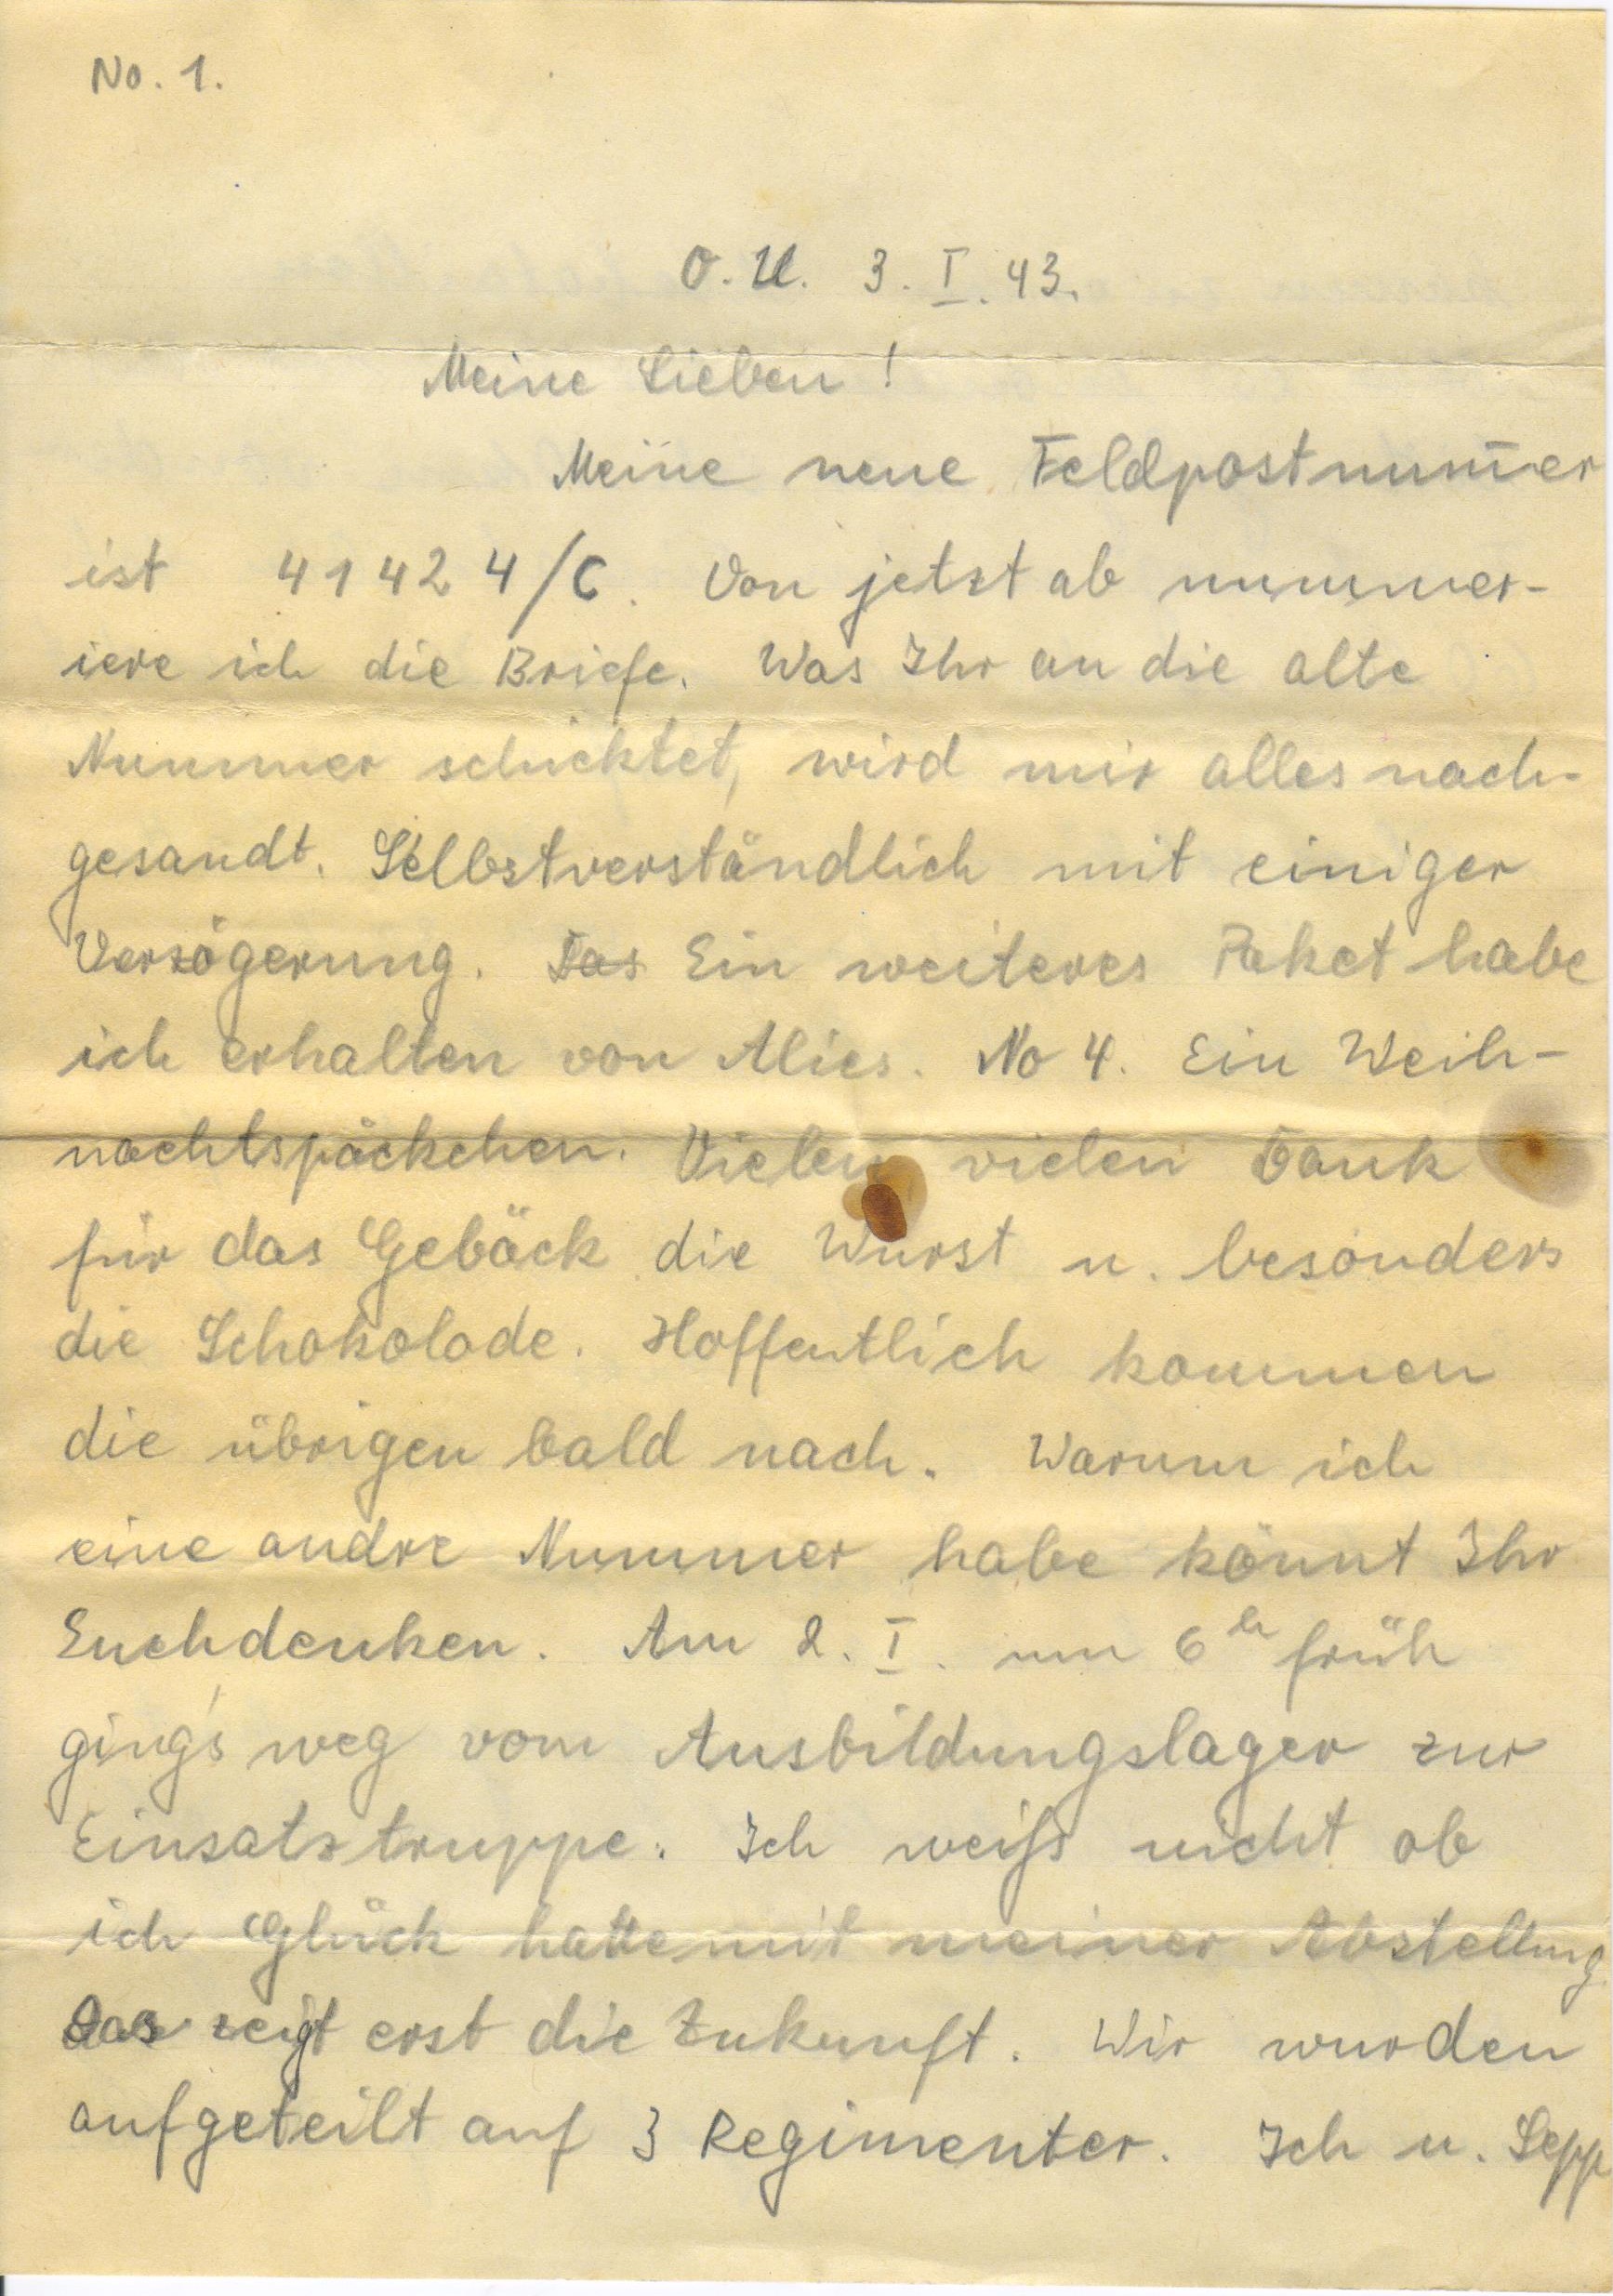 No. 1.
O. U. 3. I. 43.
Meine Lieben!
Meine neue Feldpostnum̄er
ist 41424/C. Von jetzt ab nummer-
iere ich die Briefe. Was Ihr an die alte
Nummer schicktet, wird mir alles nach-
gesandt. Selbstverständlich mit einiger
Verzögerung. Das Ein weiteres Paket habe
ich erhalten von Alies. No 4. Ein Weih-
nachtspäckchen. Vielen vielen Dank
für das Gebäck die Wurst u. besonders
die Schokolade. Hoffentlich kommen
die übrigen bald nach. Warum ich
eine andre Nummer habe könnt Ihr
Euch denken. Am 2. I. um 6 h früh
ging's weg vom Ausbildungslager zur
Einsatztruppe. Ich weiß nicht ob
ich Glück hatte mit meiner Abstellung
das zeigt erst die Zukunft. Wir wurden
aufgeteilt auf 3 Regimenter. Ich u. Sepp